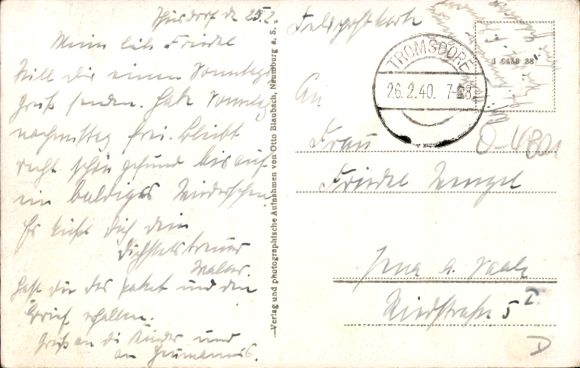 25.2.
Mein lieb Friedel
Will dir einen Sonntags
gruß senden. Habe Sonntag
nachmittag frei. Bleibt
recht schön gesund bis auf
ein baldiges Wiedersehen
Es küßt dich dein
Walter.
Hast du das Paket und den
Brief erhalten.
Gruß an die Kinder und
an
Verlag und photographische Aufnahmen von Otto Blaubach, Naumburg a. S.
Feldpostkarte
TROMSDORF
26.2.40. 7-8
An
Frau
Friedel Wengel
Jena a. Saale
5 I